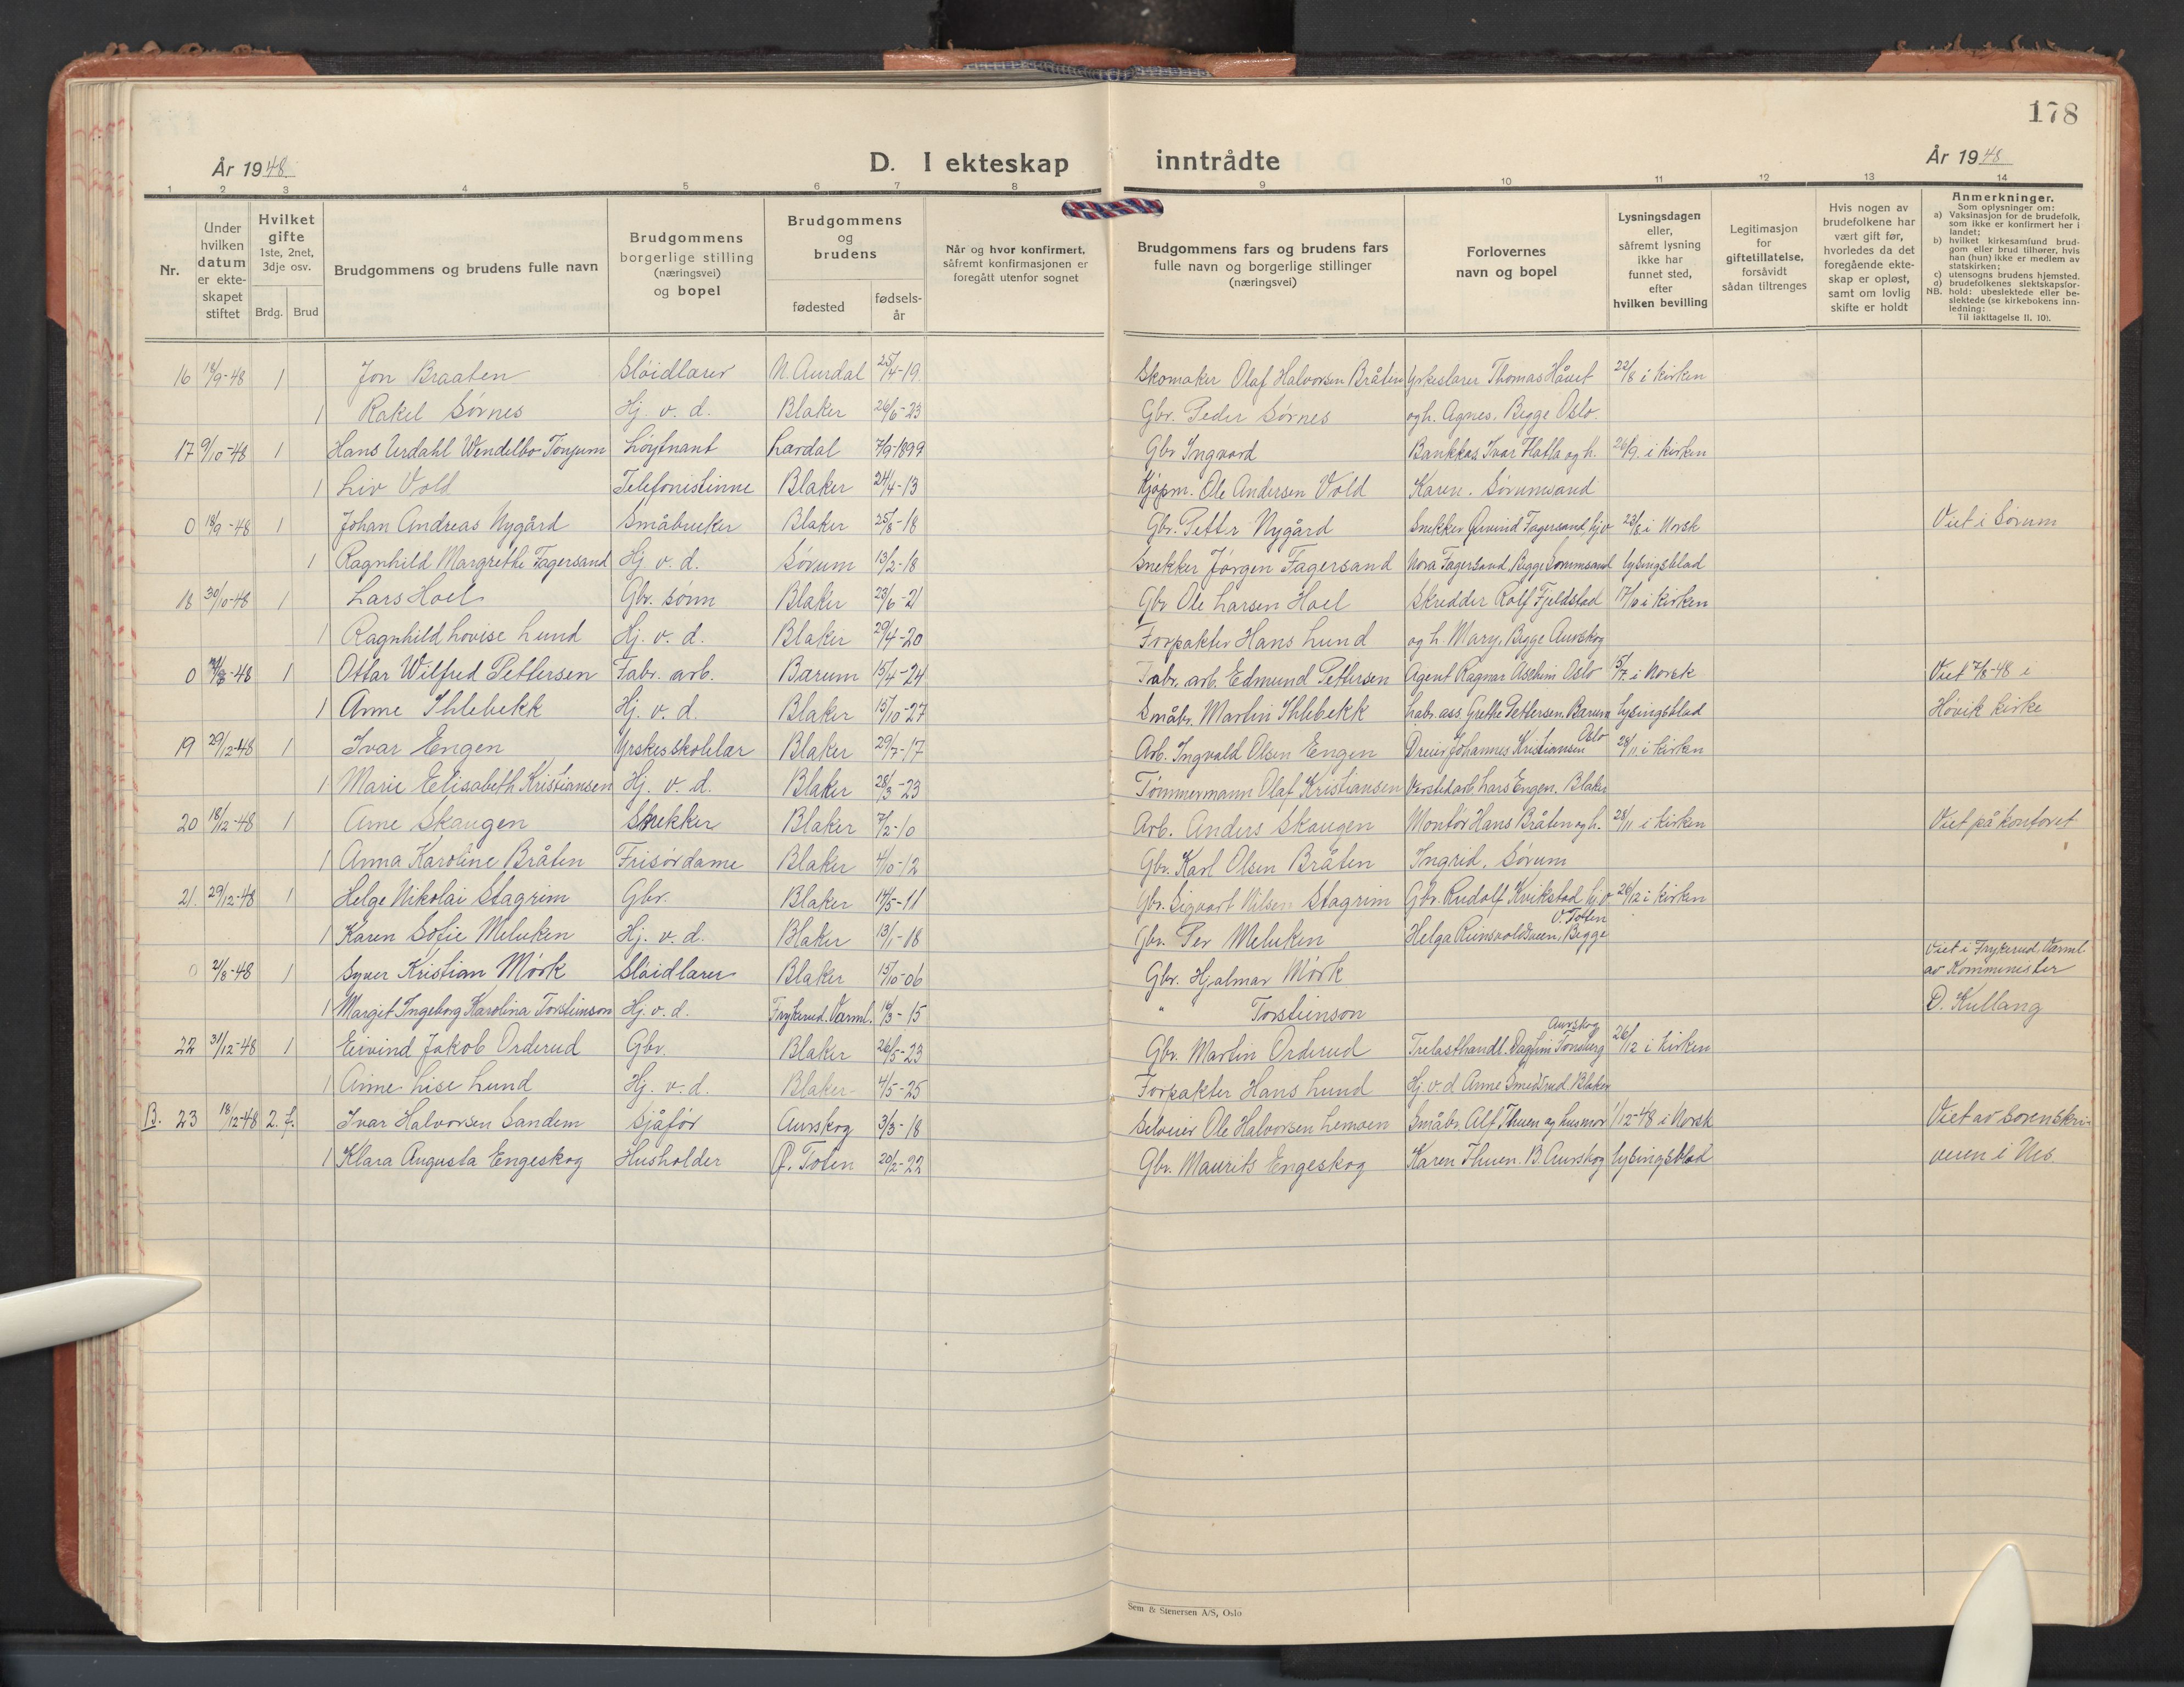 178
År 1948.
D. I ekteskap inntrådte
År 1948
1 2 3 4 5 6 7 8 9 10 11 12 13 14
Nr.
Under hvilken datum er ekteskapet stiftet
Hvilket gifte 1ste, 2net, 3dje osv.
Brdg. Brud
Brudgommens og brudens fulle navn
Brudgommens borgerlige stilling (næringsvei) og bopel
Brudgommens og brudens
fødested
fødselsår
Når og hvor konfirmert, såfremt konfirmasjonen er foregått utenfor sognet
Brudgommens fars og brudens fars fulle navn og borgerlige stillinger (næringsvei)
Forlovernes navn og bopel
Lysningsdagen eller, såfremt lysning ikke har funnet sted, efter hvilken bevilling
Legitimasjon for giftetillatelse, forsåvidt sådan tiltrenges
Hvis nogen av brudefolkene har vært gift før, hvorledes da det foregående ekteskap er opløst, samt om lovlig skifte er holdt
Anmerkninger.
Som oplysninger om:
a) Vaksinasjon for de brudefolk, som ikke er konfirmert her i landet;
b) hvilket kirkesamfund brudgom eller brud tilhører, hvis han (hun) ikke er medlem av statskirken;
c) utensogns brudens hjemsted.
d) brudefolkenes slektskapsforhold: ubeslektede eller beslektede (se kirkebokens innledning:
NB.
Til iakttagelse II. 10).
16 18/9-48 1 Jon Braaten Sløidlærer N. Aurdal 25/4-19 Skomaker Olaf Halvorsen Bråten Yrkeslærer Thomas Håvet 22/8 i kirken
1 Rakel Sørnes Hj. v. d. Blaker 26/6-23 Gbr. Peder Sørnes og h. Agnes. Begge Oslo.
17 9/10-48 1 Hans Urdahl Wendelbo Tønjum Løytnant Lærdal 7/9-1899 Gbr Ingvard Bankkas. Ivar Flatla og h. 26/9. i kirken
1 Liv Vold Telefonistinne Blaker 24/4-13 Kjøpm. Ole Andersen Vold Karen. Sørumsand
0 18/9-48 1 Johan Andreas Nygård Småbruker Blaker 25/8-18 Gbr. Petter Nygård Snekker Øivind Fagersand, hj.v 23/8 i Norsk Viet i Sørum
1 Ragnhild Margrethe Fagersand Hj. v. d. Sørum 13/2-18 Snekker Jørgen Fagersand Nora Fagersand, Begge Sørumsand lysingsblad
18 30/10-48 1 Lars Hoel Gbr. sønn Blaker 23/6-21 Gbr Ole Larsen Hoel Skredder Rolf Fjeldstad 17/10 i kirken
1 Ragnhild Lovise Lund Hj. v. d. Blaker 29/4-20 Forpakter Hans Lund og h. Mary, Begge Aurskog
0 7/8-48 1 Ottar Wilfred Pettersen Fabr. arb. Bærum 15/4-24 Fabr. arb. Edmund Pettersen Agent Ragnar Aschim Oslo 15/7 i Norsk Viet 7/8-48 i
1 Anne Ihlebekk Hj. v. d. Blaker 15/10-27 Småbr. Martin Ihlebekk Labr. ass. Grethe Pettersen. Bærum lysingsblad Høvik kirke
19 29/12-48 1 Ivar Engen Yrkesskolelær Blaker 29/7-17 Arb. Ingvald Olsen Engen Dreier Johannes Kristiansen Oslo 28/11 i kirken
1 Marie Elisabeth Kristiansen Hj. v. d. Blaker 28/3-23 Tømmermann Olaf Kristiansen Verstedarb. Lars Engen, Blaker
20 18/12-48 1 Arne Skaugen Snekker Blaker 7/2-10 Arb. Anders Skaugen Montør Hans Bråten og h. 28/11 i kirken Viet på kontoret
1 Anna Karoline Bråten Frisørdame Blaker 4/10-12 Gbr. Karl Olsen Bråten Ingrid, Sørum
21. 29/12-48 1 Helge Nikolai Stagrim Gbr. Blaker 14/5-11 Gbr. Sigvart Nilsen Stagrim Gbr. Rudolf Kvikstad hj.v 26/12 i kirken
1 Karen Sofie Meluken Hj. v. d. Blaker 13/1-18 Gbr. Per Meluken Helga Reinsvoldsveen, Begge V. Toten
0 2/8-48 1 Syver Kristian Mørk Sløidlærer Blaker 15/10-06 Gbr. Hjalmar Mørk Viet i Frykerud Värml. av Komminister
1 Margit Ingeborg Karolina Torstensson Hj. v. d. Frykerud. Värml. 14/3-15 " Torstensson D. Kullang
22 31/12-48 1 Eivind Jakob Orderud Gbr. Blaker 26/5-23 Gbr. Martin Orderud Trelasthandl. Dagfinn Tønsberg Aurskog 26/12 i kirken
1 Anne Lise Lund Hj. v. d. Blaker 4/5-25 Forpakter Hans Lund Hj. v. d Anne Smedsrud, Blaker
B. 23 18/12-48 2. f. Ivar Halvorsen Sandem Sjåfør Aurskog 3/3-18 Selveier Ole Halvorsen Lemoen Småbr. Alf Thuen og husmor 1/12-48 i Norsk Viet av sorenskri-
1 Klara Augusta Engeskog Husholder Ø. Toten 20/2-22 Gbr. Maurits Engeskog Karen Thuen. B. Aurskog lysingsblad veren i Nes
Sem & Stenersen A/S, Oslo